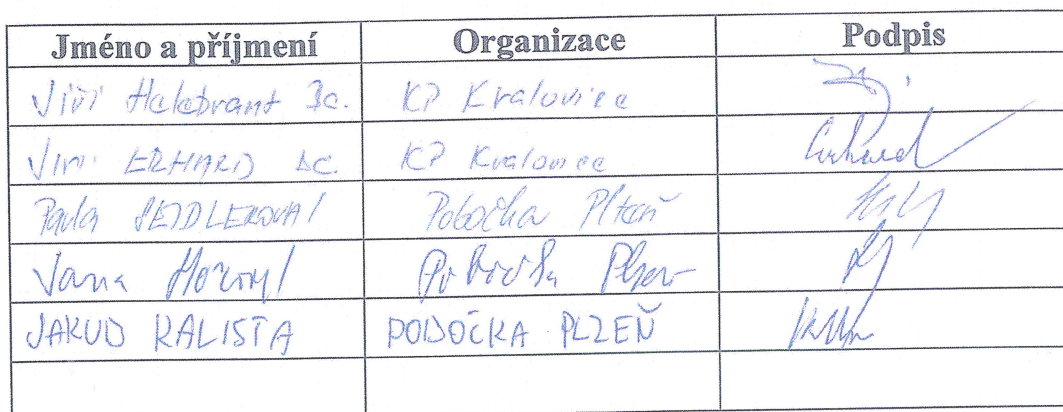 Jméno a příjmení Organizace Podpis
Jiří Halabrant Bc. KP Kralovice
Jiří ERHARD Bc. KP Kralovice Erhard
Pavla SEJDLEROVÁ Pobočka Plzeň
Jana Pobočka Plzeň
JAKUB KALISTA POBOČKA PLZEŇ